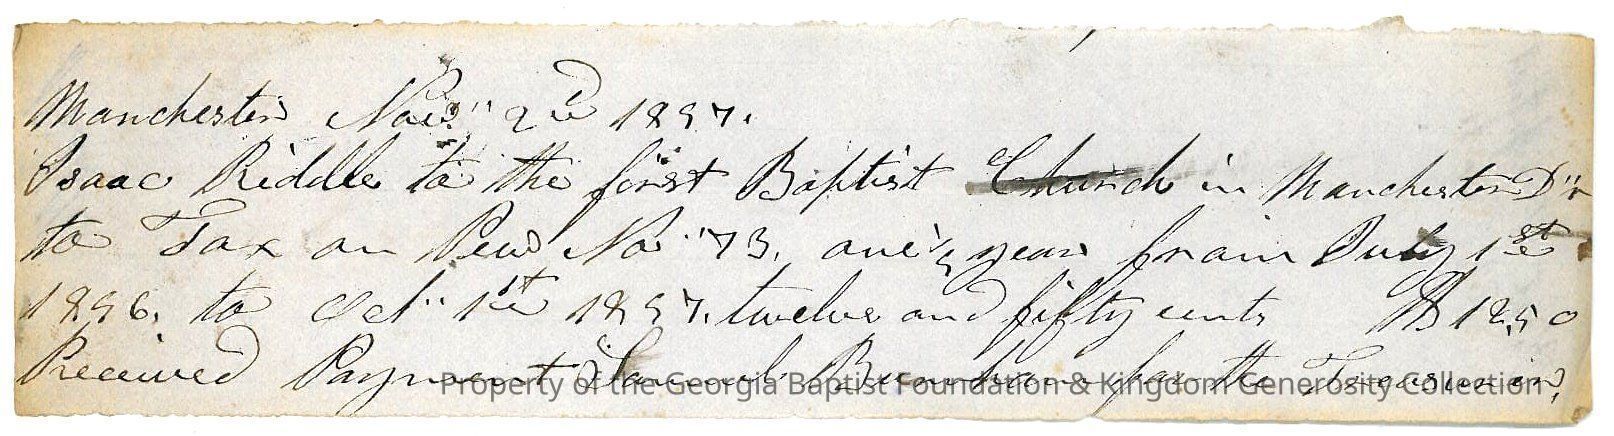 Manchester Nov." 2nd 1857.
Isaac Riddle to the first Baptist Church in Manchester D"r
to Tax on Pew No" 73. one 1/4 year from July 1st
1856. to Oct" 1st 1857. twelve and fifty cents $ 12,50
Received Payment Samuel for the Treasurer,
Property of the Georgia Baptist Foundation & Kingdom Generosity Collection